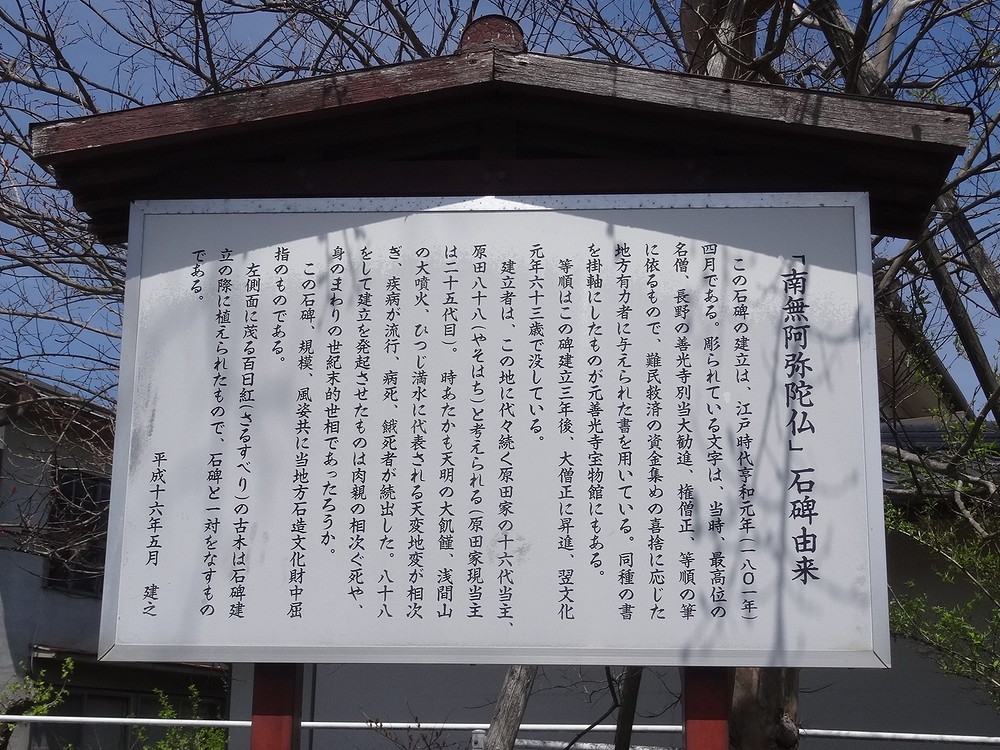 「南無阿弥陀仏」石碑由来
この石碑の建立は、江戸時代亨和元年(一八〇一年)
四月である。彫られている文字は、当時、最高位の
名僧、長野の善光寺別当大勧進、権僧正、等順の筆
に依るもので、難民救済の資金集めの喜捨に応じた
地方有力者に与えられた書を用いている。同種の書
を掛軸にしたものが元善光寺宝物館にもある。
等順はこの碑建立三年後、大僧正に昇進、翌文化
元年六十三歳で没している。
建立者は、この地に代々続く原田家の十六代当主、
原田八十八(やそはち)と考えられる(原田家現当主
は二十五代目)。時あたかも天明の大飢饉、浅間山
の大噴火、ひつじ満水に代表される天変地変が相次
ぎ、疾病が流行、病死、餓死者が続出した。八十八
をして建立を発起させたものは肉親の相次ぐ死や、
身のまわりの世紀末的世相であったろうか。
この石碑、規模、風姿共に当地方石造文化財中屈
指のものである。
左側面に茂る百日紅(さるすべり)の古木は石碑建
立の際に植えられたもので、石碑と一対をなすもの
である。
平成十六年五月 建之